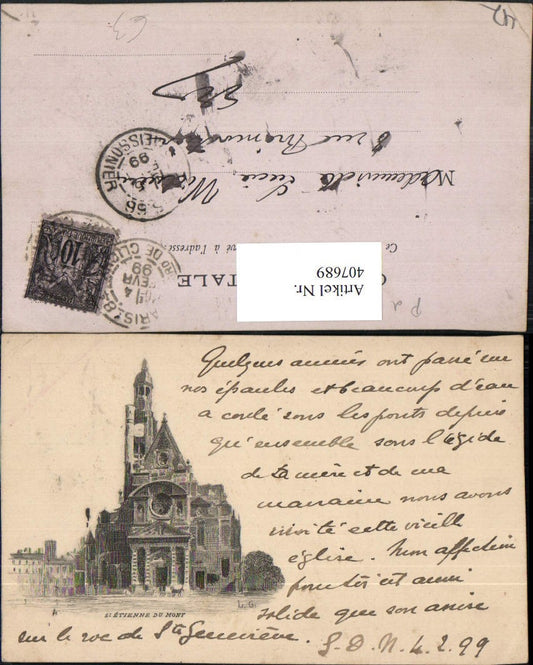 CARTE POSTALE
Ce côté est exclusivement réservé à l'adresse.
Mademoiselle Lucie
6 rue
Artikel Nr.
407689
10
PARIS
BD DE CLICHY
4
FEVR
99
MEISSONIER
99
Quelques années ont passé sur
nos épaules et beaucoup d'eau
a coulé sous les ponts depuis
qu'ensemble sous l'égide
de ta mère et de ma
marraine nous avons
visité cette vieille
église. Mon affection
pour toi est aussi
solide que son assise
sur le roc de Ste Geneviève.
S. D. N. 4. 2. 99
ST ÉTIENNE DU MONT
L. G.